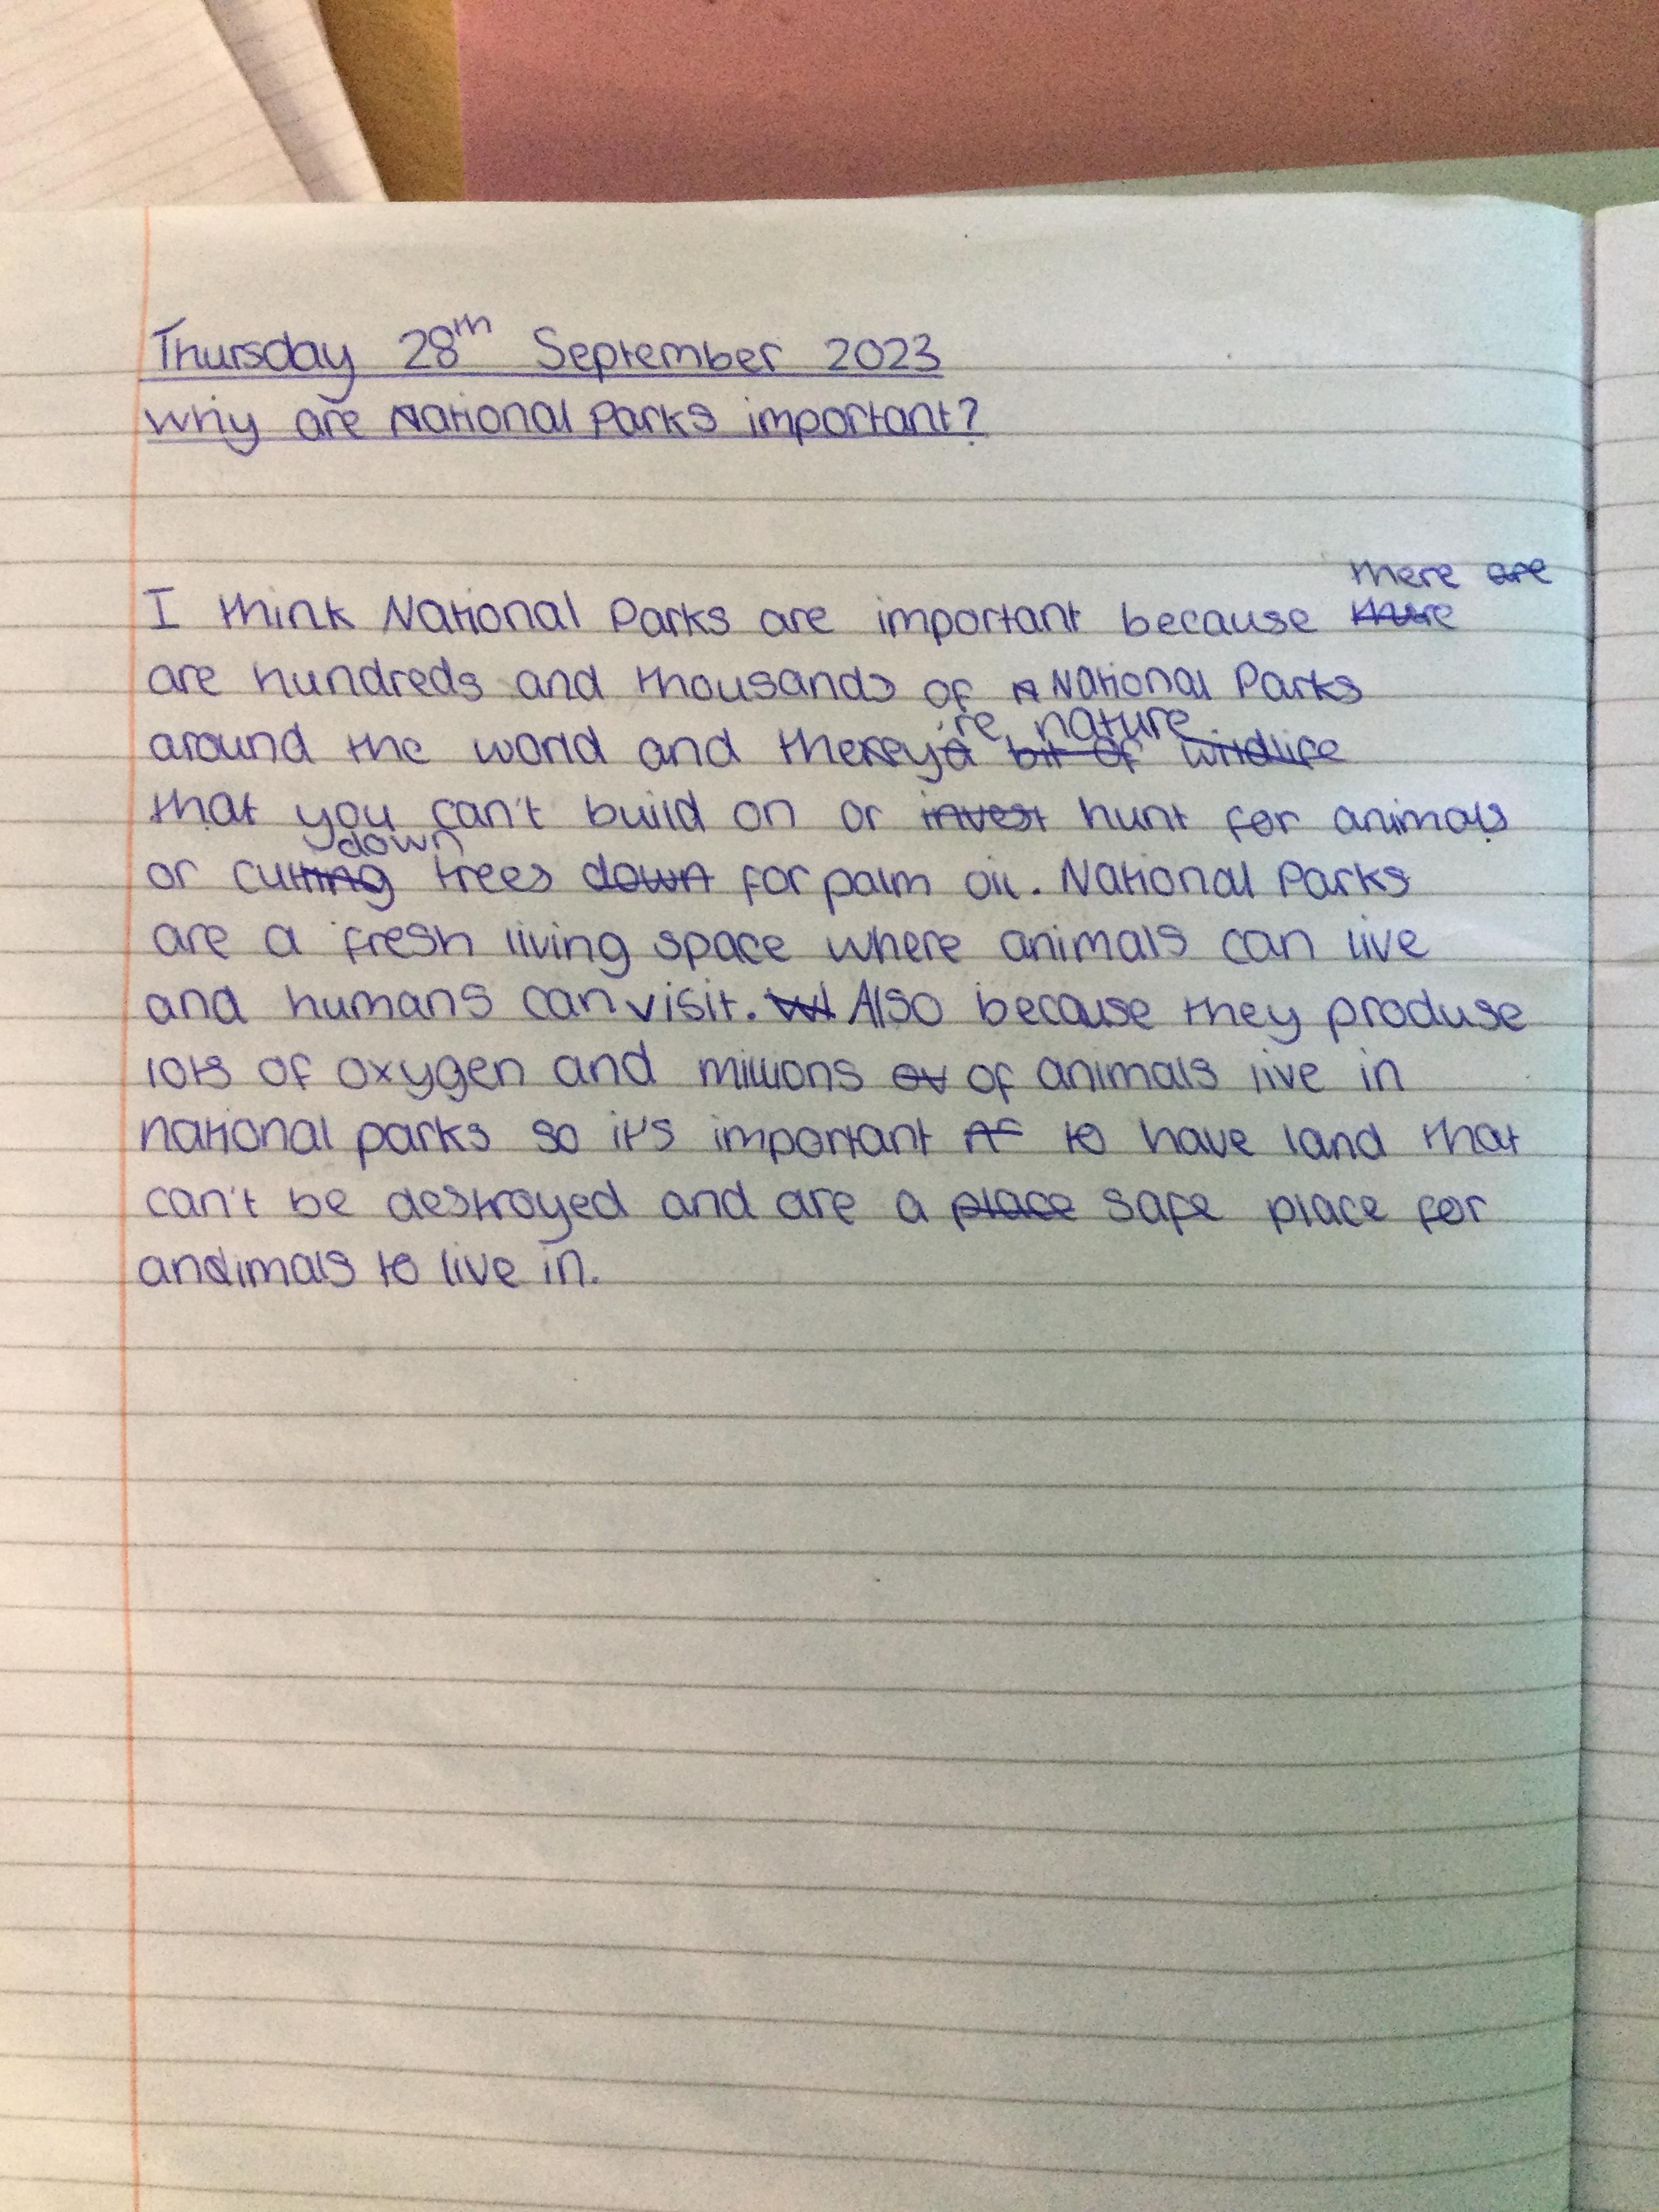 Thursday 28th September 2023
Why are National Parks important?
there are
I think National Parks are important because there
are hundreds and thousands of National Parks
're nature
around the world and they a bit of wildlife
that you can't build on or invest hunt for animals
down
or cutting trees down for palm oil. National Parks
are a fresh living space where animals can live
and humans can visit. Wi Also because they produse
lots of oxygen and millions ov of animals live in
national parks so it's important to have land that
can't be destroyed and are a place safe place for
animals to live in.